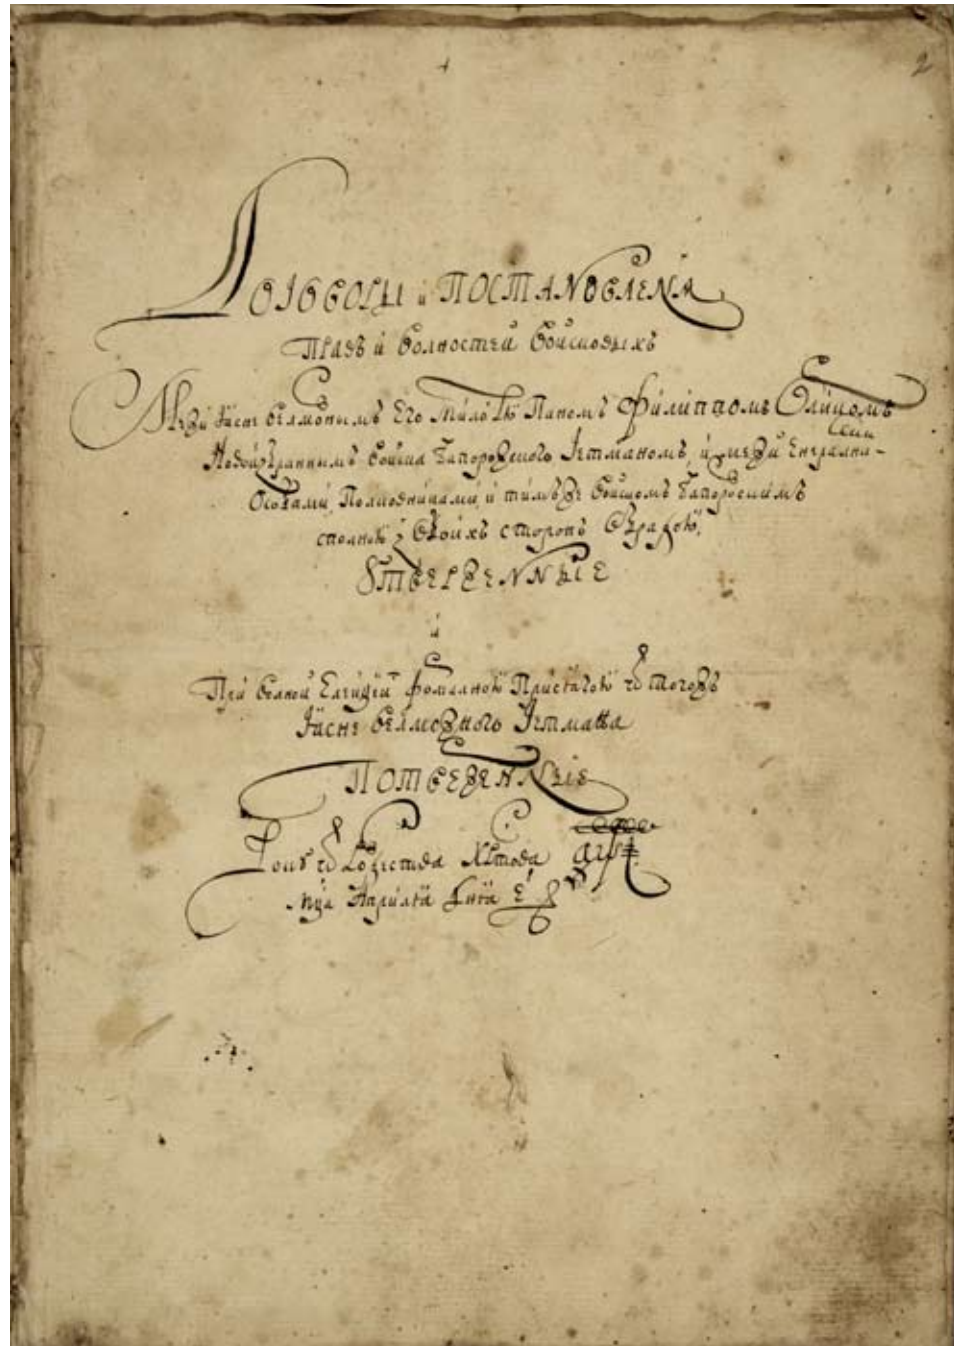 2
Договоры и Постановленя
Правъ и волностей войсковыхъ
Межи Ясне велможнымъ Его милостю Паномъ Филиппомъ Орликомъ
Новоизбраннымъ войска Запорозкого Гетманом, и межи Енералними
Особами, Полковниками, и тимъже войском Запорозкимъ
сполною з обоихъ сторонъ обрадою,
Утверженныіе
и
При волной Елекціей формалною присягою от тогожъ
Ясне велможного Гетмана
Потверженныіе
Року от Рожества Христова,
мца Априлія дня е҃